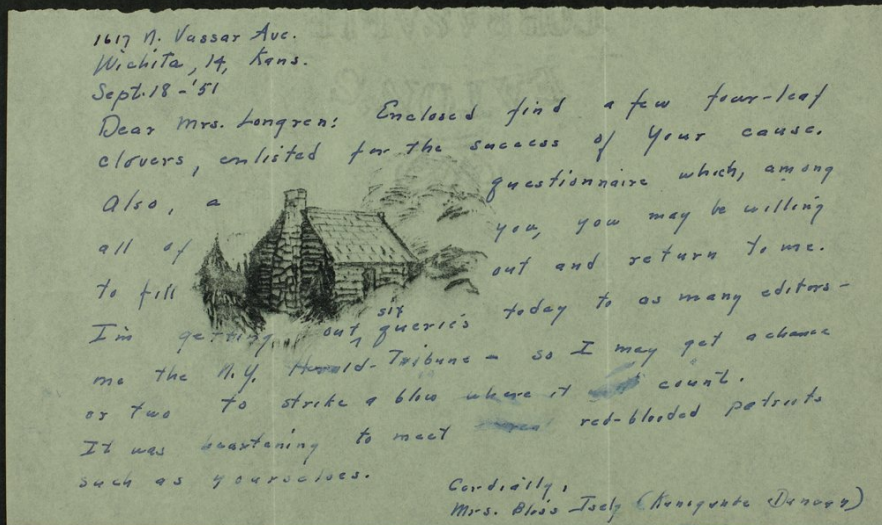 1617 N. Vassar Ave.
Wichita, 14, Kans.
Sept. 18 - '51
Dear Mrs. Longren: Enclosed find a few four-leaf
clovers, enlisted for the success of your cause.
Also, a questionnaire which, among
all of you, you may be willing
to fill out and return to me.
I'm getting out six queries today to as many editors -
me the N.Y. Herald-Tribune - so I may get a chance
or two to strike a blow where it count.
It was heartening to meet red-blooded patriots
such as yourselves.
Cordially,
Mrs. Bliss Isely (Kunigunde Duncan)